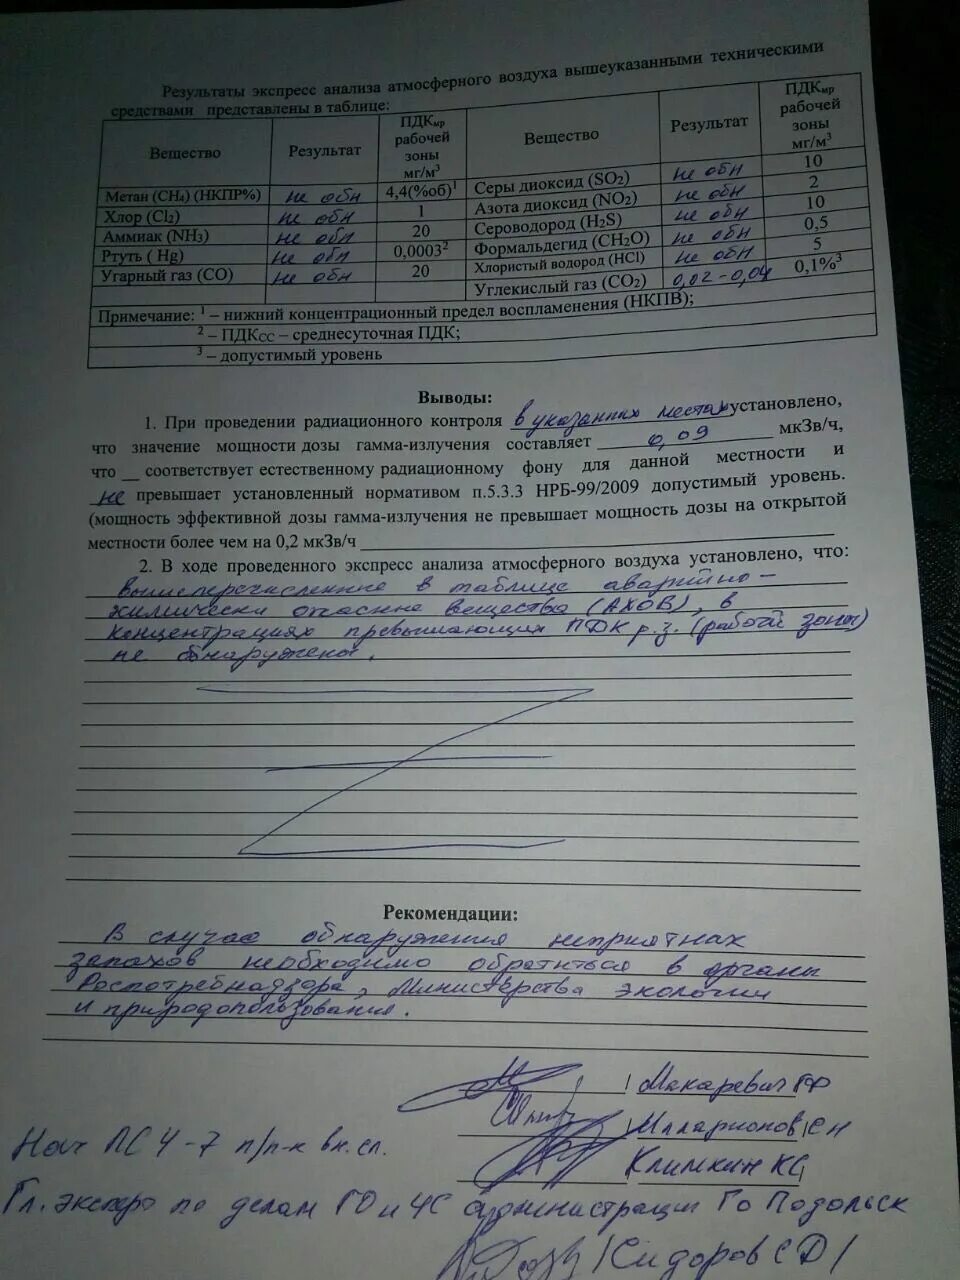 Результаты экспресс анализа атмосферного воздуха вышеуказанными техническими
средствами представлены в таблице:
Вещество Результат ПДКмр рабочей зоны мг/м³ Вещество Результат ПДКмр рабочей зоны мг/м³
Метан (CH₄) (НКПР%) не обн 4,4(%об)¹ Серы диоксид (SO₂) не обн 10
Хлор (Cl₂) не обн 1 Азота диоксид (NO₂) не обн 2
Аммиак (NH₃) не обн 20 Сероводород (H₂S) не обн 10
Ртуть ( Hg) не обн 0,0003² Формальдегид (CH₂O) не обн 0,5
Угарный газ (CO) не обн 20 Хлористый водород (HCl) не обн 5
Углекислый газ (CO₂) 0,02-0,04 0,1%³
Примечание: ¹ – нижний концентрационный предел воспламенения (НКПВ);
² – ПДКсс – среднесуточная ПДК;
³ – допустимый уровень
Выводы:
1. При проведении радиационного контроля в указанных местах установлено,
что значение мощности дозы гамма-излучения составляет 0,09 мкЗв/ч,
что __ соответствует естественному радиационному фону для данной местности и
не превышает установленный нормативом п.5.3.3 НРБ-99/2009 допустимый уровень.
(мощность эффективной дозы гамма-излучения не превышает мощность дозы на открытой
местности более чем на 0,2 мкЗв/ч
2. В ходе проведенного экспресс анализа атмосферного воздуха установлено, что:
вышеперечисленные в таблице аварийно-
химически опасные вещества (АХОВ), в
концентрациях превышающих ПДК р.з. (рабочей зоны)
не обнаружены.
Рекомендации:
В случае обнаружения неприятных
запахов необходимо обратиться в органы
Роспотребнадзора, Министерства экологии
и природопользования.
Макаревич ГФ
Илларионов СН
Нач ПСЧ-7 п/п-к вн.сл.
Климкин КС
Гл. эксперт по делам ГО и ЧС администрации Го Подольск
Сидоров СД